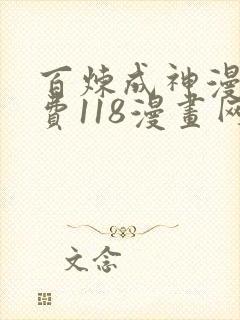 百炼成神漫
費118漫畫网
文念